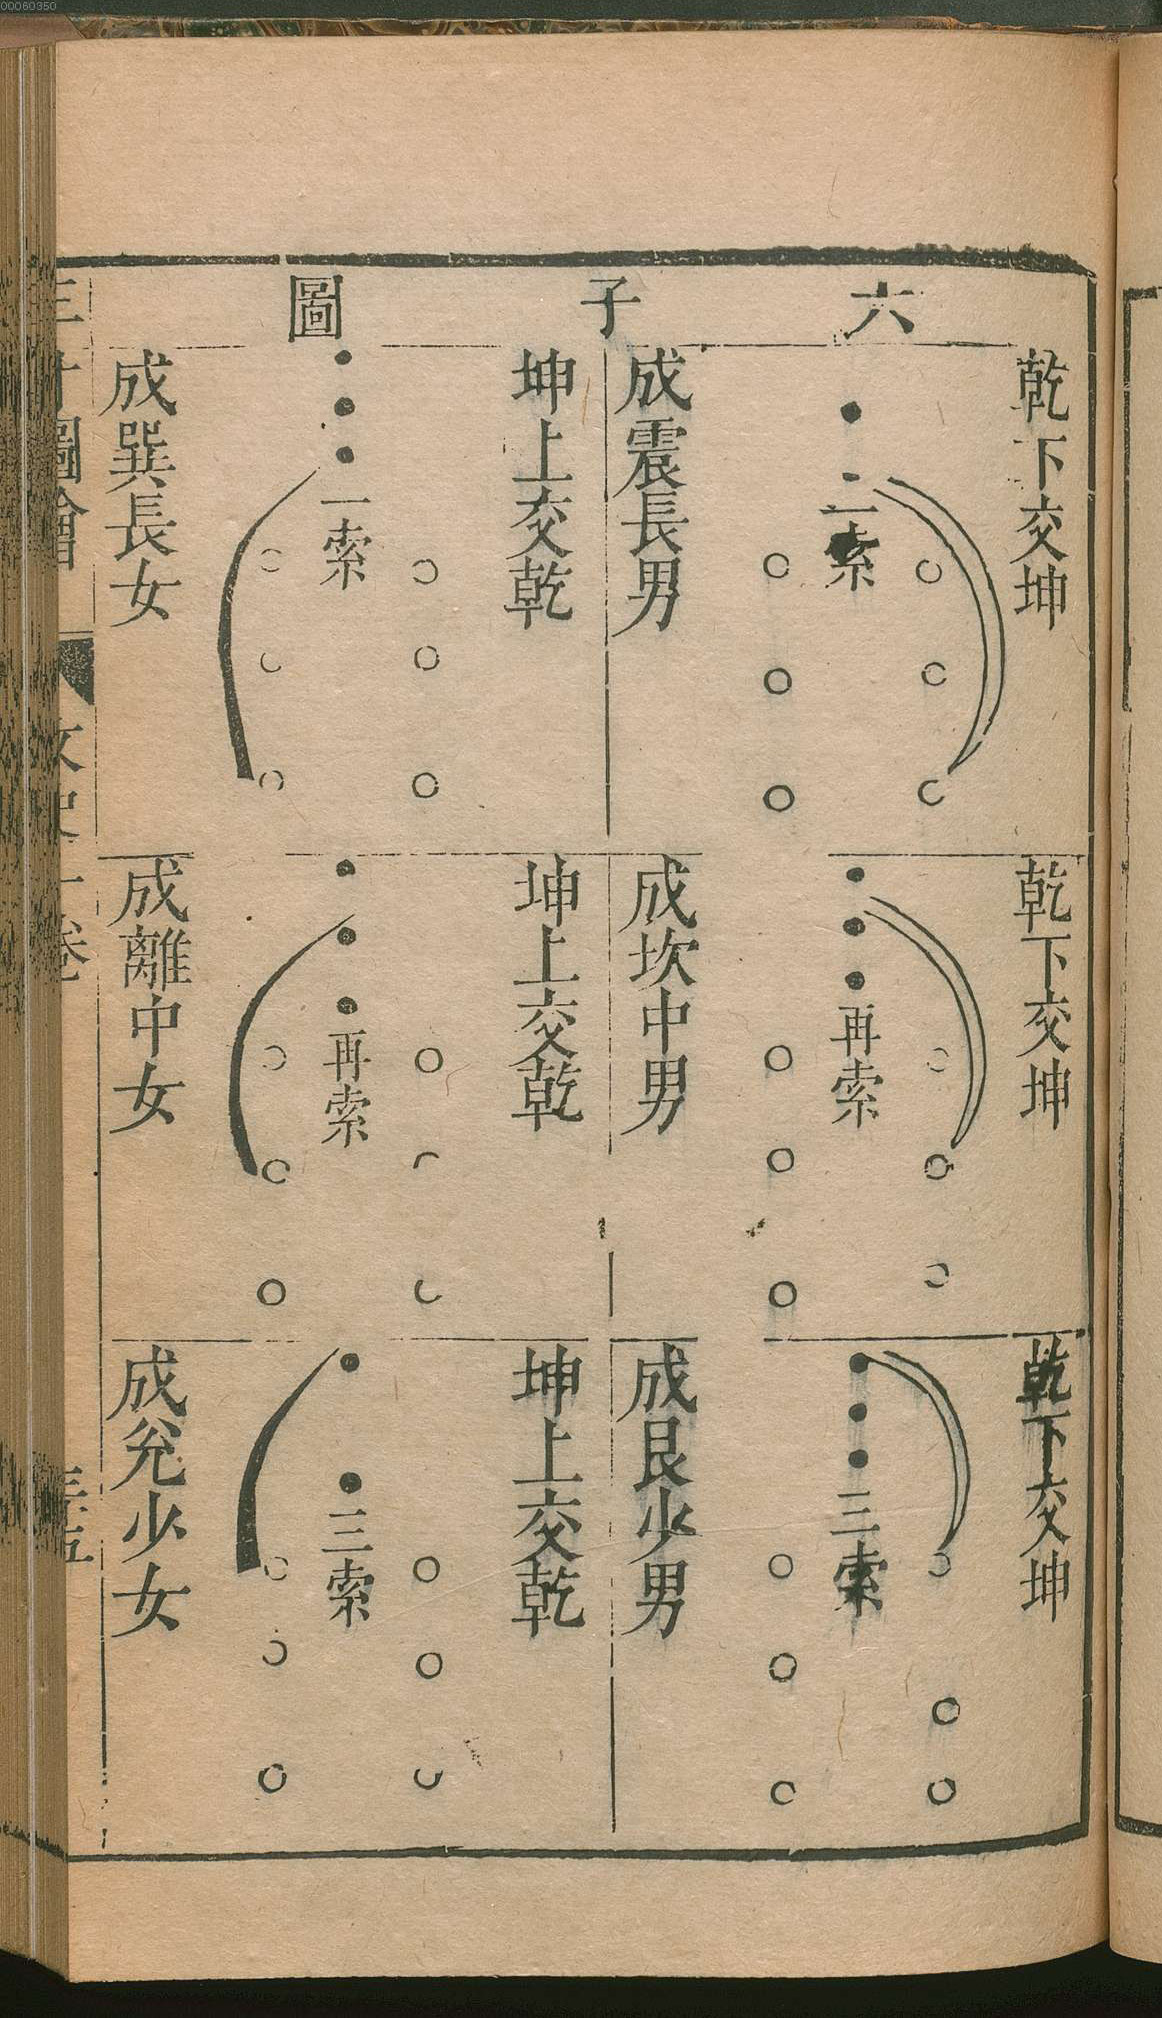 00060350
六子圖
乾下交坤
一索
成震長男
坤上交乾
一索
成巽長女
乾下交坤
再索
成坎中男
坤上交乾
再索
成離中女
乾下交坤
三索
成艮少男
坤上交乾
三索
成兌少女
圖會
卷